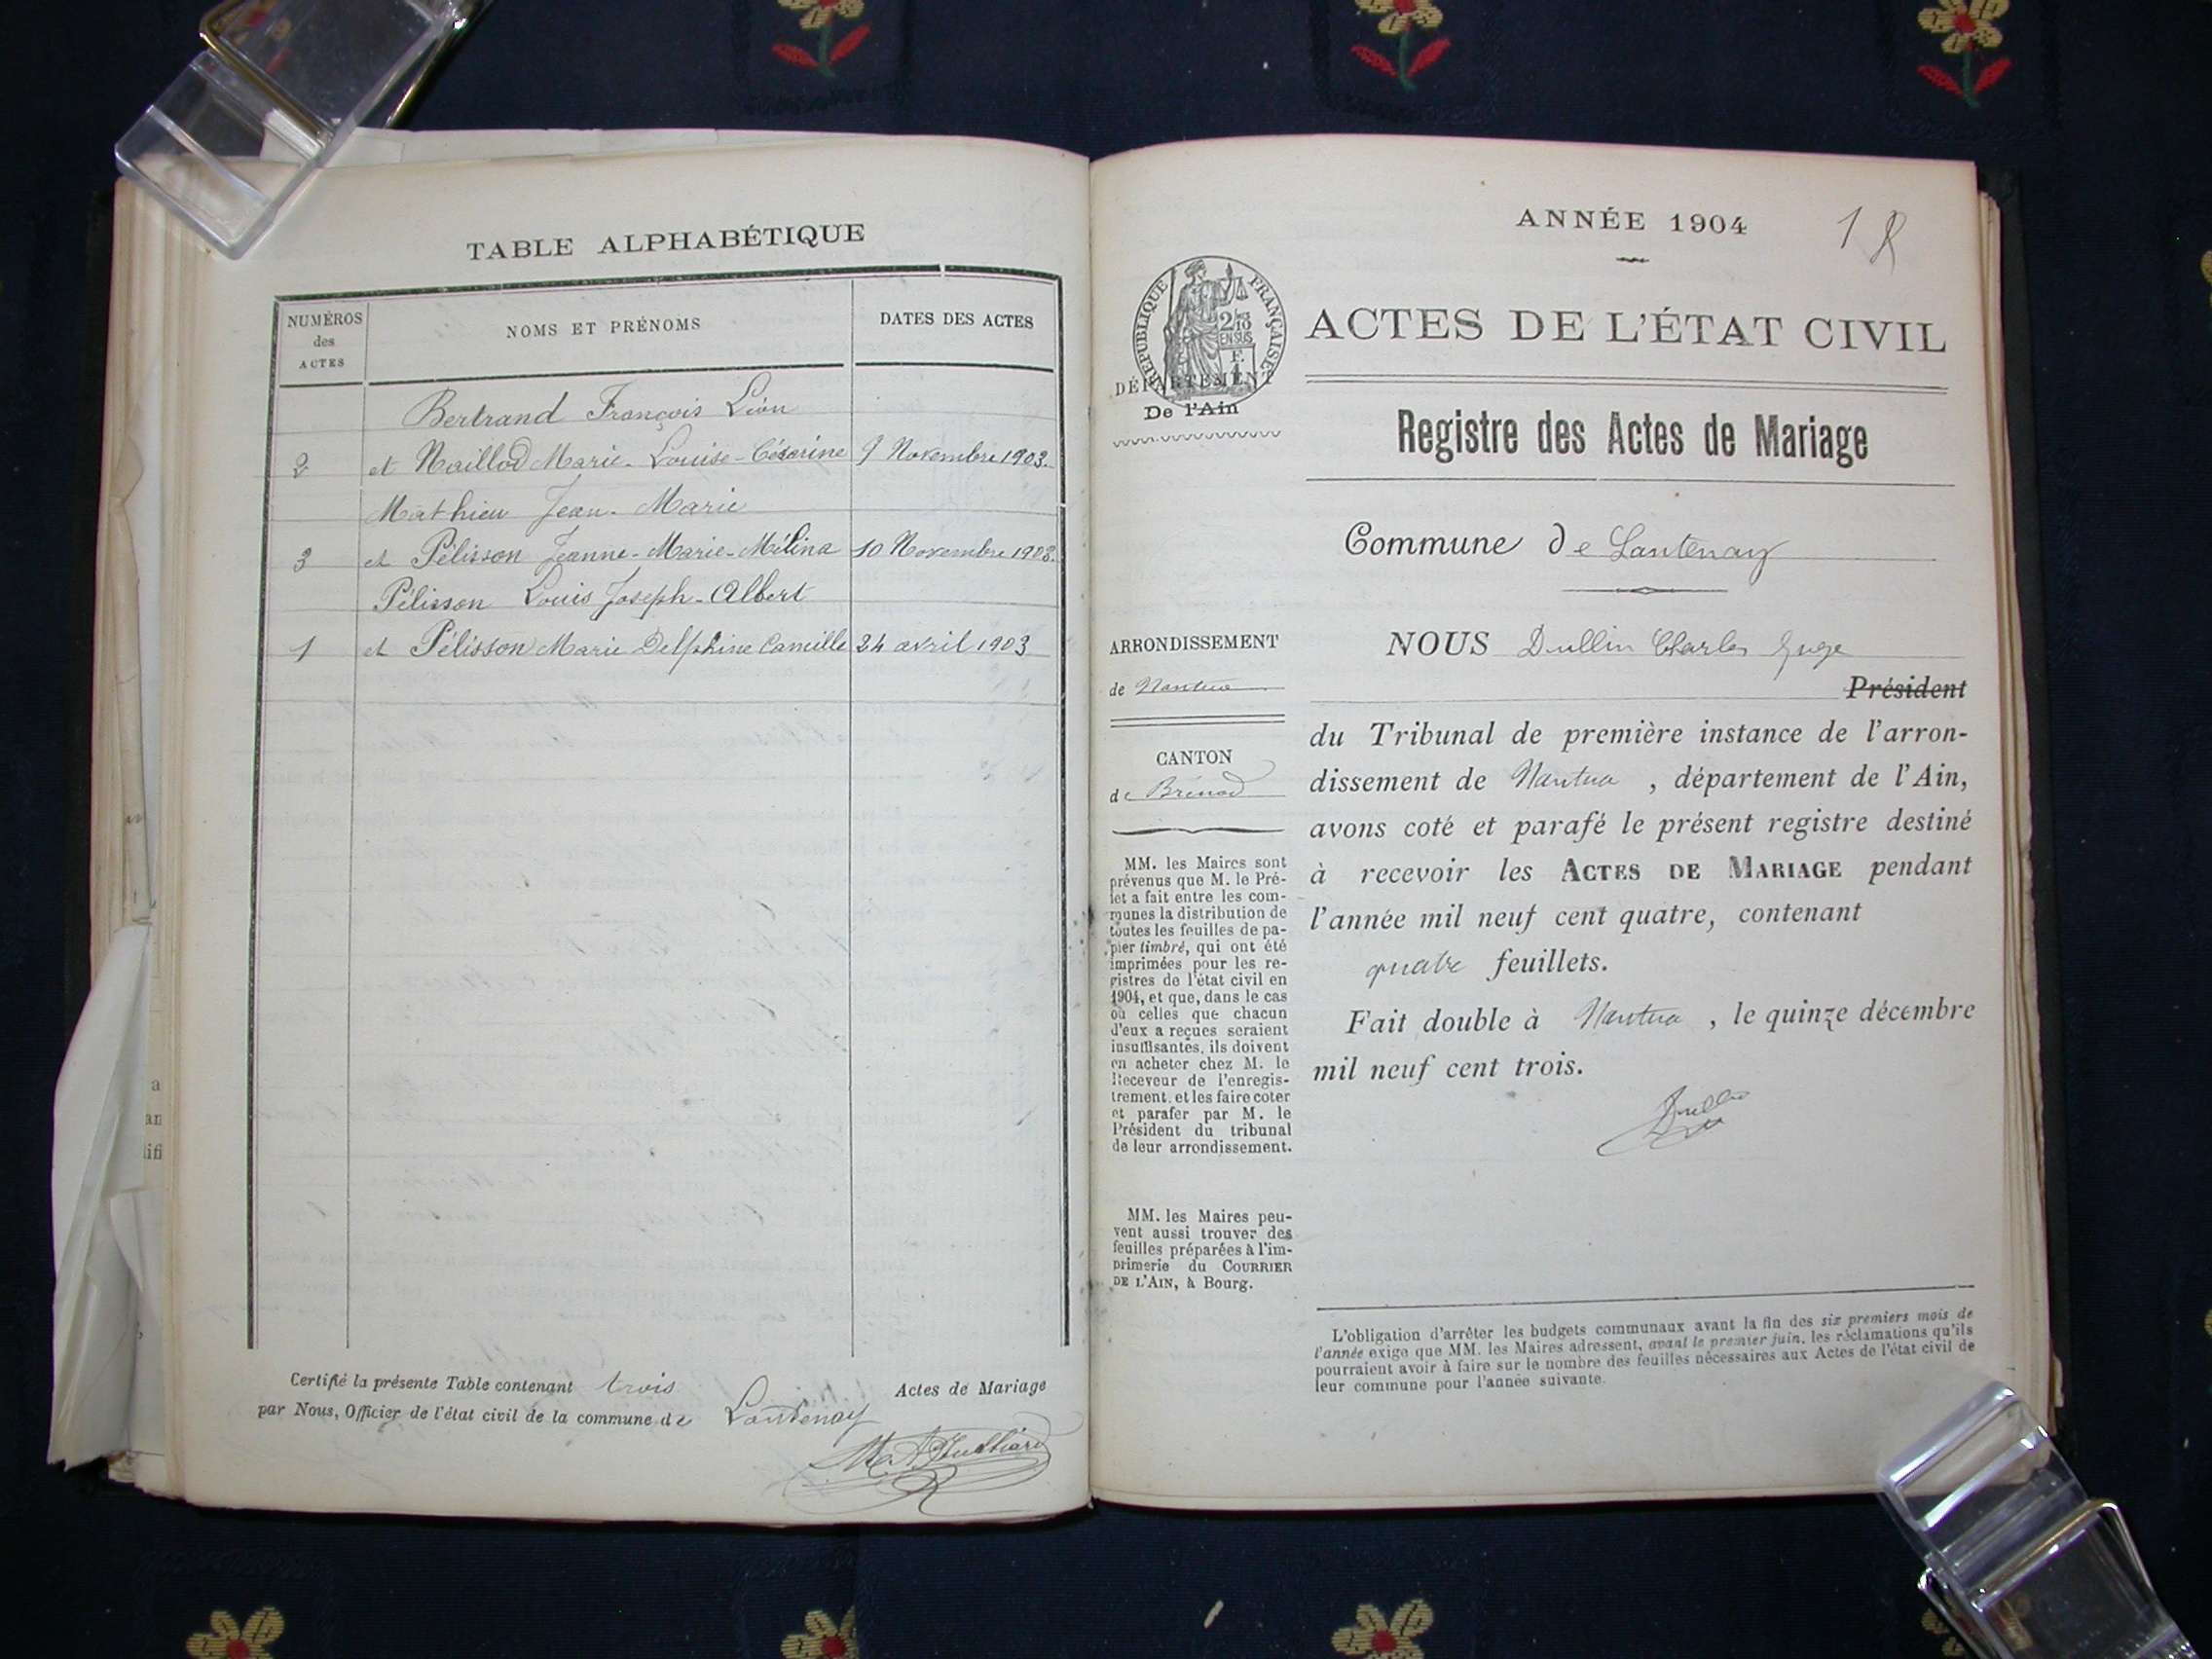 TABLE ALPHABÉTIQUE
NUMÉROS
des
ACTES
NOMS ET PRÉNOMS
DATES DES ACTES
Bertrand François Léon
2 et Maillod Marie-Louise-Césarine 9 Novembre 1903.
Mathieu Jean-Marie
3 et Pélisson Jeanne-Marie-Mélina 10 Novembre 1903.
Pélisson Louis Joseph-Albert
1 et Pélisson Marie Delphine Camille 24 avril 1903
Certifié la présente Table contenant trois Actes de Mariage
par Nous, Officier de l'état civil de la commune de Lantenay
ANNÉE 1904
1
ACTES DE L'ÉTAT CIVIL
RÉPUBLIQUE FRANÇAISE
2/10
EN SUS
F.
DÉPARTEMENT
De l'Ain
Registre des Actes de Mariage
Commune de Lantenay
ARRONDISSEMENT
de Nantua
CANTON
de Brénod
MM. les Maires sont
prévenus que M. le Pré-
fet a fait entre les com-
munes la distribution de
toutes les feuilles de pa-
pier timbré, qui ont été
imprimées pour les re-
gistres de l'état civil en
1904, et que, dans le cas
où celles que chacun
d'eux a reçues seraient
insuffisantes, ils doivent
en acheter chez M. le
Receveur de l'enregis-
trement, et les faire coter
et parafer par M. le
Président du tribunal
de leur arrondissement.
MM. les Maires peu-
vent aussi trouver des
feuilles préparées à l'im-
primerie du COURRIER
DE L'AIN, à Bourg.
NOUS Dullin Charles Juge
Président
du Tribunal de première instance de l'arron-
dissement de Nantua , département de l'Ain,
avons coté et parafé le présent registre destiné
à recevoir les ACTES DE MARIAGE pendant
l'année mil neuf cent quatre, contenant
quatre feuillets.
Fait double à Nantua , le quinze décembre
mil neuf cent trois.
Dullin
L'obligation d'arrêter les budgets communaux avant la fin des six premiers mois de
l'année exige que MM. les Maires adressent, avant le premier juin, les réclamations qu'ils
pourraient avoir à faire sur le nombre des feuilles nécessaires aux Actes de l'état civil de
leur commune pour l'année suivante.